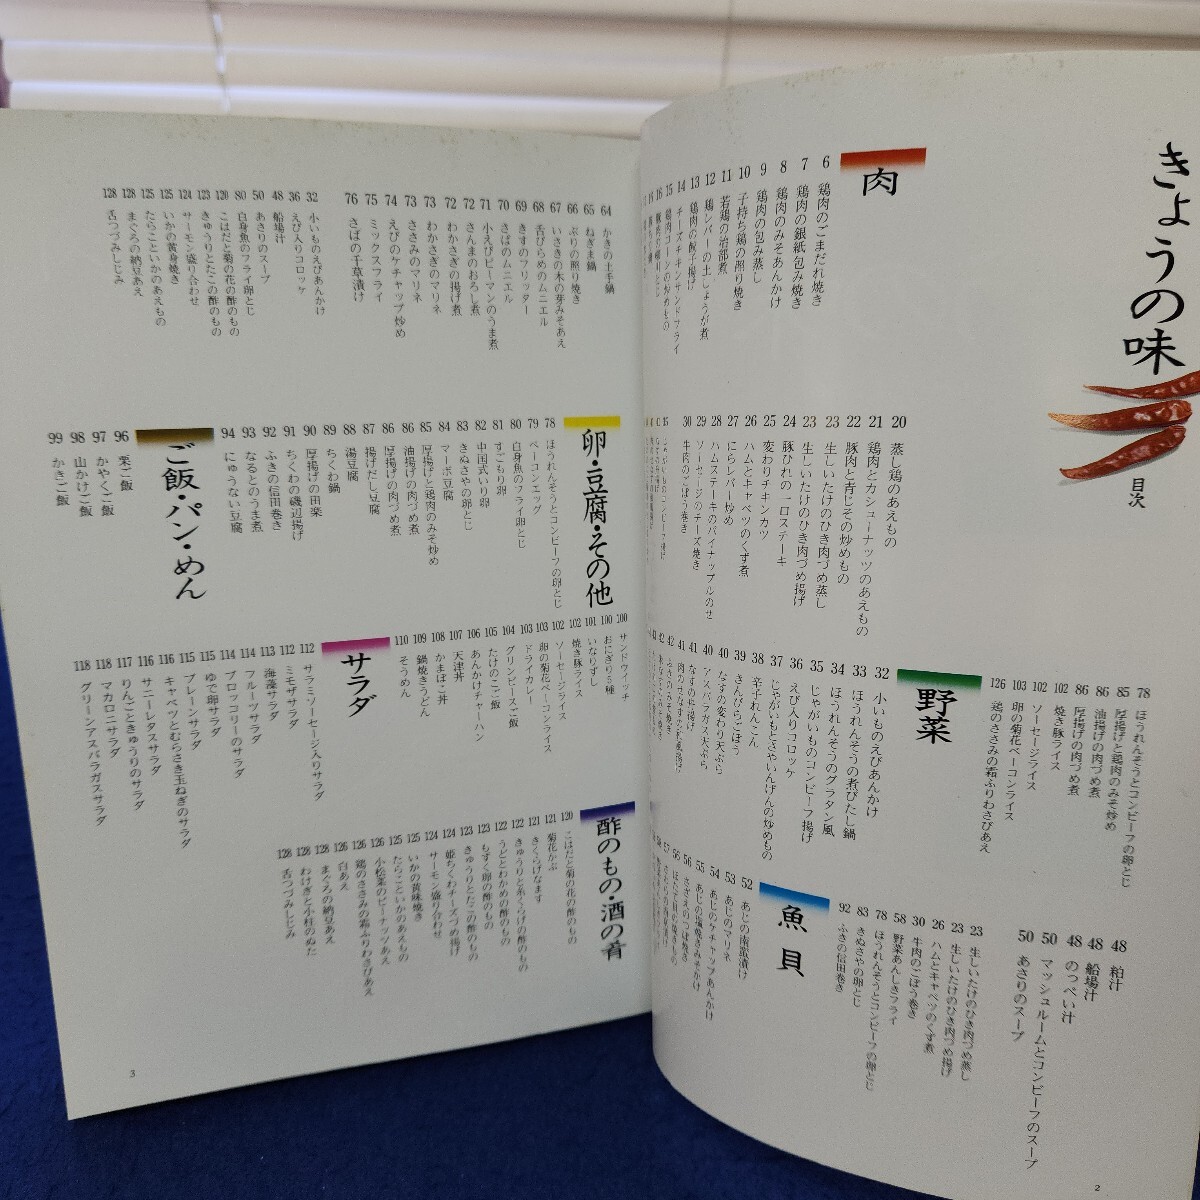 きょうの味
目次
肉
6 鶏肉のごまだれ焼き
7 鶏肉の銀紙包み焼き
8 鶏肉のみそあんかけ
9 鶏肉の包み蒸し
10 子持ち鶏の照り焼き
11 若鶏の治部煮
12 鶏レバーの土しょうが煮
13 鶏肉の餃子揚げ
14 チーズチキンサンドフライ
15 鶏肉コーンの炒めもの
20 蒸し鶏のあえもの
21 鶏肉とカシューナッツのあえもの
22 豚肉と青じその炒めもの
23 生しいたけのひき肉づめ蒸し
23 生しいたけのひき肉づめ揚げ
24 豚ひれの一口ステーキ
25 変わりチキンカツ
26 ハムとキャベツのくず煮
27 にらレバー炒め
28 ハムステーキのパイナップルのせ
29 ソーセージのチーズ焼き
30 牛肉のごぼう巻き
78 ほうれんそうとコンビーフの卵とじ
85 厚揚げと鶏肉のみそ炒め
86 油揚げの肉づめ煮
86 厚揚げの肉づめ煮
102 焼き豚ライス
102 ソーセージライス
103 卵の菊花ベーコンライス
126 鶏のささみの霜ふりわさびあえ
野菜
32 小いものえびあんかけ
33 ほうれんそうの煮びたし鍋
34 ほうれんそうのグラタン風
35 じゃがいものコンビーフ揚げ
36 えび入りコロッケ
37 じゃがいもとさやいんげんの炒めもの
38 辛子れんこん
39 きんぴらごぼう
40 なすの変わり天ぷら
40 アスパラガス天ぷら
41 なすの牛揚げ
48 粕汁
48 船場汁
48 のっぺい汁
50 マッシュルームとコンビーフのスープ
50 あさりのスープ
23 生しいたけのひき肉づめ蒸し
23 生しいたけのひき肉づめ揚げ
26 ハムとキャベツのくず煮
30 牛肉のごぼう巻き
58 野菜あんしきフライ
78 ほうれんそうとコンビーフの卵とじ
83 きぬさやの卵とじ
92 ふきの信田巻き
魚貝
52 あじの南蛮漬け
53 あじのマリネ
54 あじのケチャップあんかけ
2
64 かきの土手鍋
65 ねぎま鍋
66 ぶりの照り焼き
67 いさきの木の芽みそあえ
68 舌びらめのムニエル
69 きすのフリッター
70 さばのムニエル
71 小えびピーマンのうま煮
72 さんまのおろし煮
72 わかさぎの揚げ煮
73 わかさぎのマリネ
73 ささみのマリネ
74 えびのケチャップ炒め
75 ミックスフライ
76 さばの千草漬け
32 小いものえびあんかけ
36 えび入りコロッケ
48 船場汁
50 あさりのスープ
80 白身魚のフライ卵とじ
120 こはだと菊の花の酢のもの
123 きゅうりとたこの酢のもの
124 サーモン盛り合わせ
125 いかの黄身焼き
125 たらこといかのあえもの
128 まぐろの納豆あえ
128 舌つづみしじみ
卵・豆腐・その他
78 ほうれんそうとコンビーフの卵とじ
79 ベーコンエッグ
80 白身魚のフライ卵とじ
81 すごもり卵
82 中国式いり卵
83 きぬさやの卵とじ
84 マーボ豆腐
85 厚揚げと鶏肉のみそ炒め
86 油揚げの肉づめ煮
86 厚揚げの肉づめ煮
87 揚げだし豆腐
88 湯豆腐
89 ちくわ鍋
90 厚揚げの田楽
91 ちくわの磯辺揚げ
92 ふきの信田巻き
93 なるとのうま煮
94 にゅうない豆腐
ご飯・パン・めん
96 栗ご飯
97 かやくご飯
98 山かけご飯
99 かきご飯
100 サンドウイッチ
100 おにぎり5種
101 いなりずし
102 焼き豚ライス
102 ソーセージライス
103 卵の菊花ベーコンライス
103 ドライカレー
104 グリンピースご飯
105 たけのこご飯
106 あんかけチャーハン
107 天津丼
108 かまぼこ丼
109 鍋焼きうどん
110 そうめん
サラダ
112 サラミソーセージ入りサラダ
112 ミモザサラダ
113 海藻サラダ
114 フルーツサラダ
114 ブロッコリーのサラダ
115 ゆで卵サラダ
115 プレーンサラダ
116 キャベツとむらさき玉ねぎのサラダ
116 サニーレタスサラダ
117 りんごときゅうりのサラダ
118 マカロニサラダ
118 グリーンアスパラガスサラダ
酢のもの・酒の肴
120 こはだと菊の花の酢のもの
121 菊花かぶ
121 きくらげなます
122 きゅうりと糸くらげの酢のもの
122 うどとわかめの酢のもの
123 もずく卵の酢のもの
123 きゅうりとたこの酢のもの
124 姫ちくわチーズづめ揚げ
124 サーモン盛り合わせ
125 いかの黄味焼き
125 たらこといかのあえもの
126 小松菜のピーナッツあえ
126 鶏のささみの霜ふりわさびあえ
126 白あえ
128 まぐろの納豆あえ
128 わけぎと小柱のぬた
128 舌つづみしじみ
3